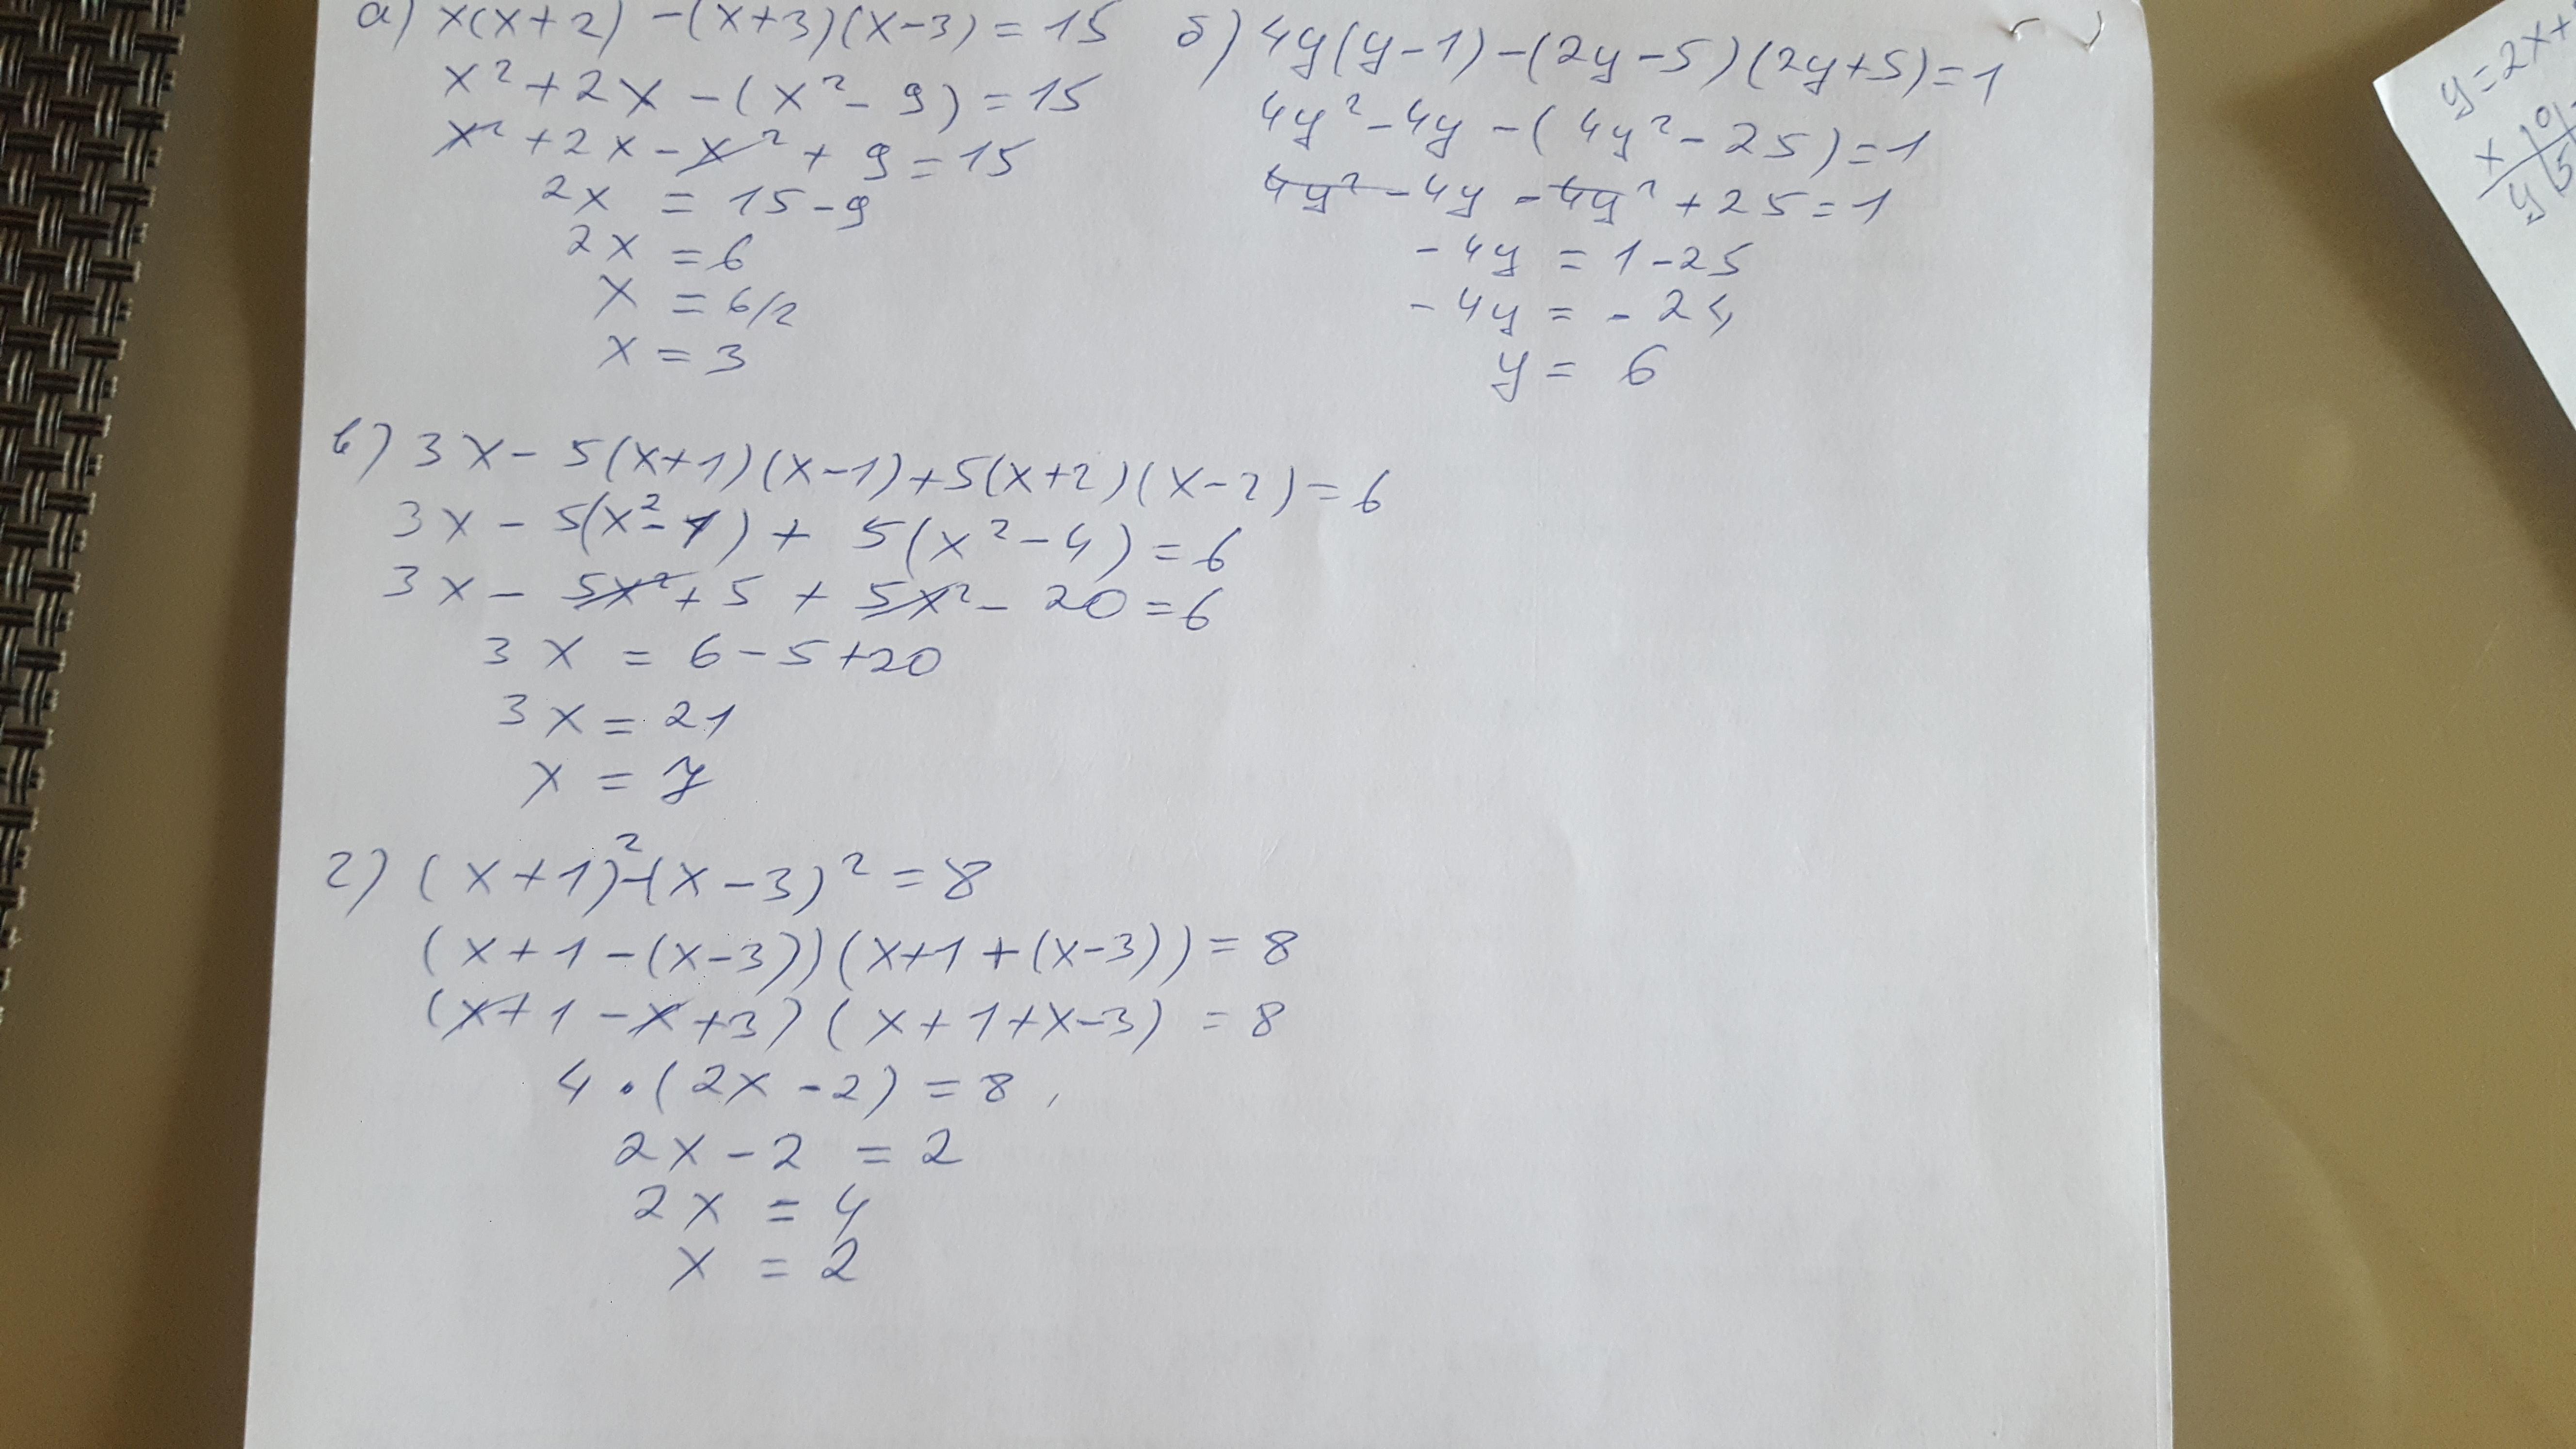 а) x(x+2) -(x+3)(x-3) = 15
x² + 2x - (x² - 9) = 15
x² + 2x - x² + 9 = 15
2x = 15 - 9
2x = 6
x = 6/2
x = 3
б) 4y(y-1) -(2y-5)(2y+5) = 1
4y² - 4y - (4y² - 25) = 1
4y² - 4y - 4y² + 25 = 1
- 4y = 1 - 25
- 4y = - 24
y = 6
в) 3x - 5(x+1)(x-1) + 5(x+2)(x-2) = 6
3x - 5(x² - 1) + 5(x² - 4) = 6
3x - 5x² + 5 + 5x² - 20 = 6
3x = 6 - 5 + 20
3x = 21
x = 7
г) (x+1)² - (x-3)² = 8
(x+1 - (x-3))(x+1 + (x-3)) = 8
(x+1 - x + 3)(x+1+x-3) = 8
4 · (2x - 2) = 8
2x - 2 = 2
2x = 4
x = 2
y = 2x+
x 0
y 5